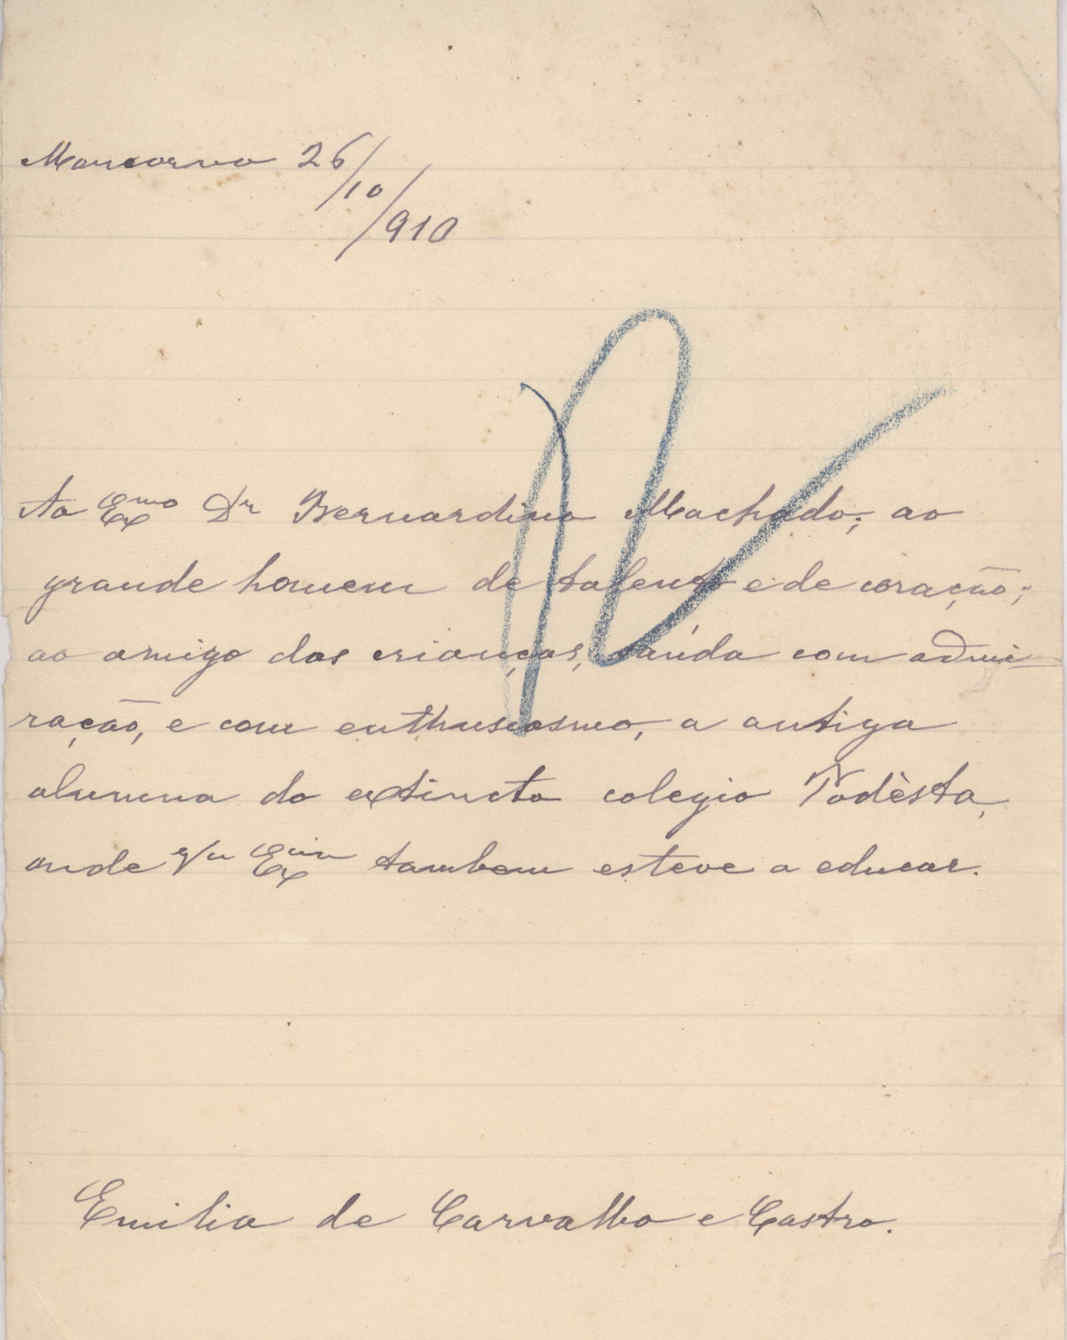 Moncorvo 26/10/910
R
Ao Exmo Dr Bernardino Machado; ao
grande homem de talento e de coração;
ao amigo das crianças, saúda com admi-
ração, e com enthusiasmo, a antiga
alumna do extincto colegio Podèsta,
onde Va Excia tambem esteve a educar.
Emilia de Carvalho e Castro.